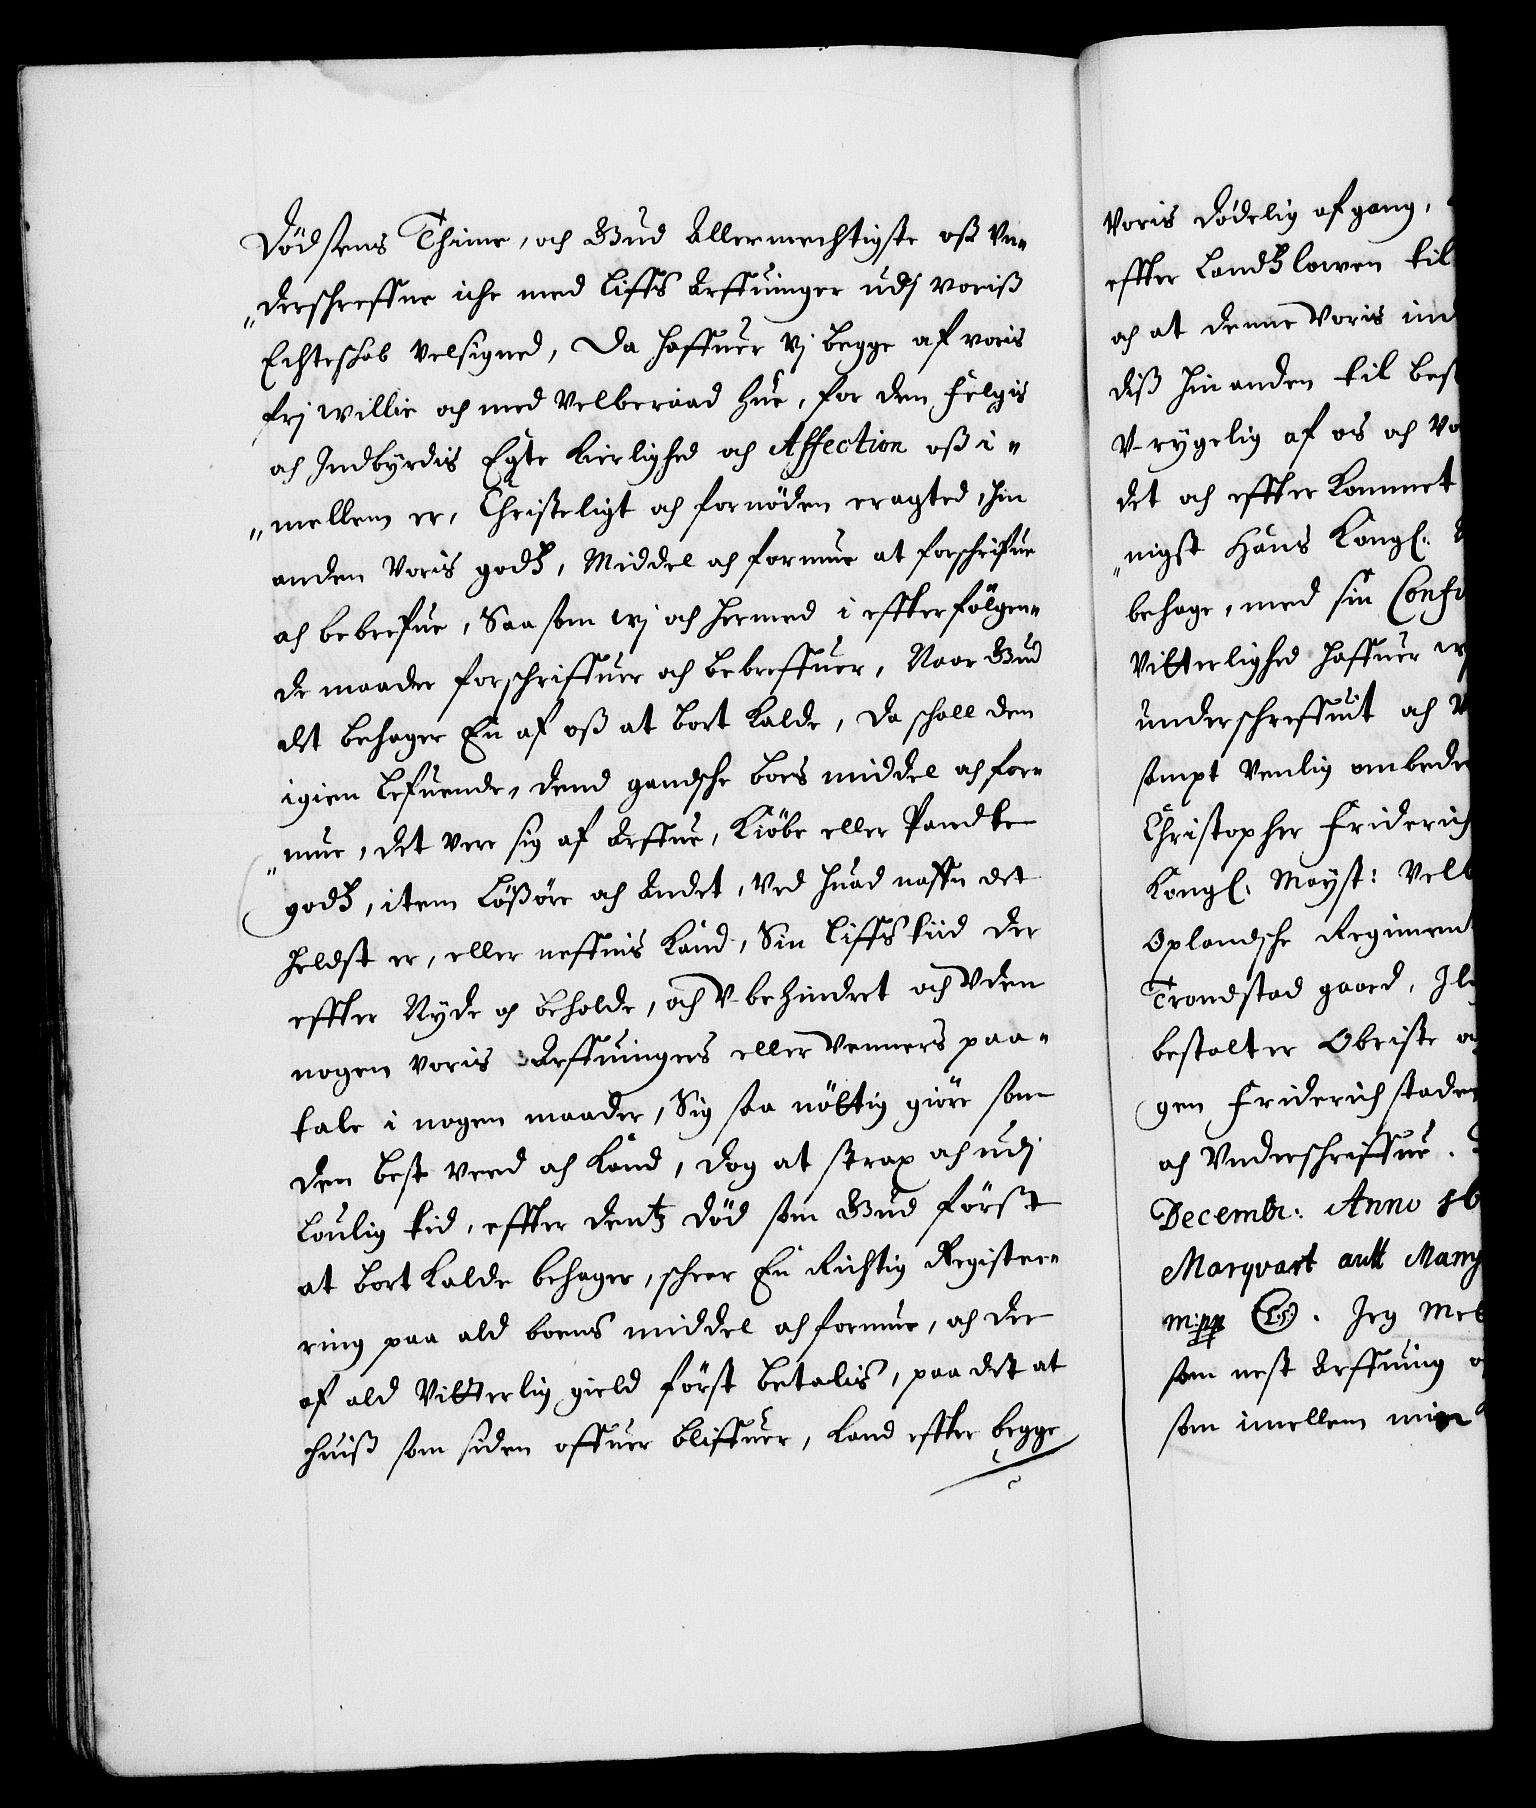 Dödsens Thime, och Gud Allermechtigste oß Un-
"derschreffne iche med Liffs Arffuinger udj voriß
Echteschab velsigned, Da haffuer Vj begge af voris
frj willie och med Velberaad hue, for den helgis
och Indbyrdis Egte Kierlighed och Affection oß i-
"mellem er, Christeligt och fornöden eragted, hin
anden Voris godtz, Middel och formue at forschrifue
och bebrefue, Saa som wj och hermed i effterfölgen-
de maader forschriffuer och bebreffuer, Naar Gud
det behager En af oß at bort kalde, da schall den
igien Lefuende, dend gandsche boes middel och for-
"mue, det vere sig af Arffue, Kiöbe eller Pandte
godtz, item Lößöre och Andet, Ved huad naffn det
helst er, eller neffnis kand, Sin Liffs tiid der
effter Nyde och beholde, och U-behindret och Uden
nogen voris Arffuingers eller Venners paa-
tale i nogen maader, Sig saa nöttig giöre som
den best veed och kand, dog at strax och udj
Loulig tid, effter dentz död som Gud förßt
at bort kalde behager, scheer En Richtig Registee-
ring paa ald boens middel och formue, och der
af ald Vitterlig gield först betalis, paa det at
huiß som siden offuer bliffuer, kand effter begge
Voris dödelig afgang,
effter Landtzlowen til
och at denne Voris ind
diß hin anden til best
U-rygelig af os och Vo
det och effterkommet
"nigst Hans Kongl.
behage, med sin Confir
Vitterlighed haffuer wj
underschreffuit och
sampt Venlig ombede
Christopher Friderich
Kongl. Mayst: Velb
Oplandsche Regiment
Trondstad gaard,
bestalter Obriste och
gen Friderichstaden
och Underschriffue.
Decembr: Anno 16
Marqvart
mpp (LS). Jeg
som nest Arffuing
som imellem min